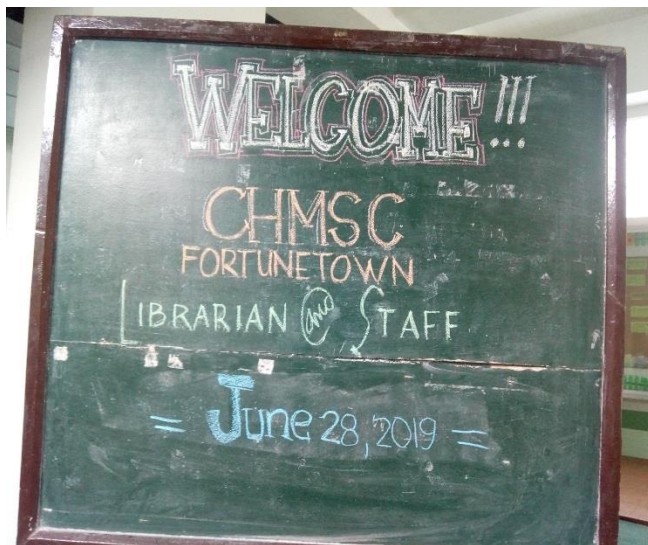 WELCOME!!!
CHMSC
FORTUNETOWN
LIBRARIAN and STAFF
= June 28, 2019 =